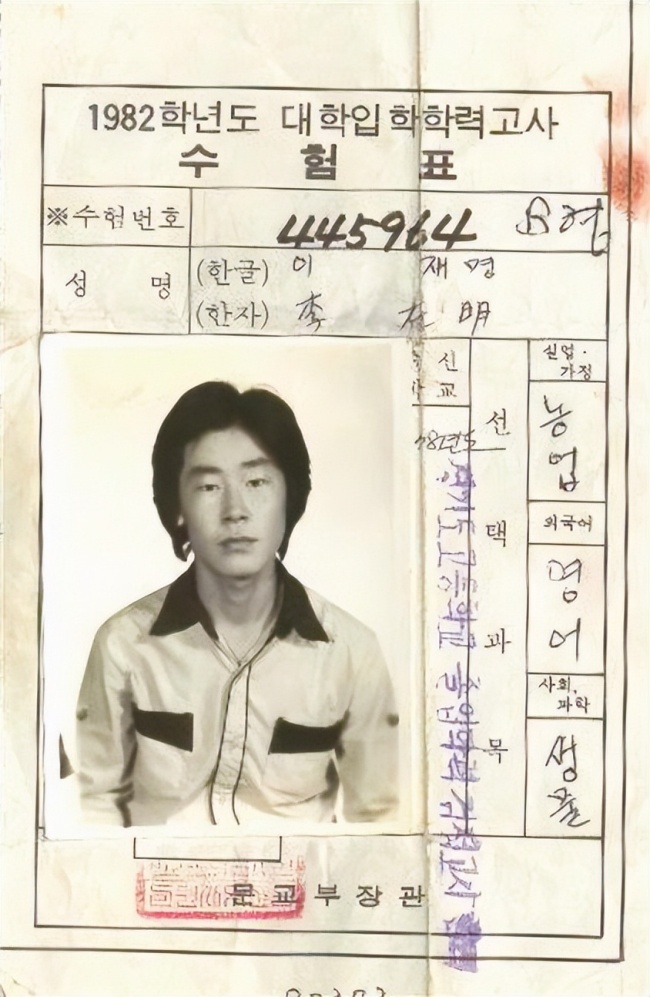 1982학년도 대학입학학력고사
수 험 표
※수험번호 445964 B형
성 명 (한글) 이 재 명
(한자) 李 在 明
신
교
82년도
선 택 과 목
실업·
가정
농업
외국어
영어
사회,
과학
생물
고등학교 졸업학력 검정고시
문교부장관